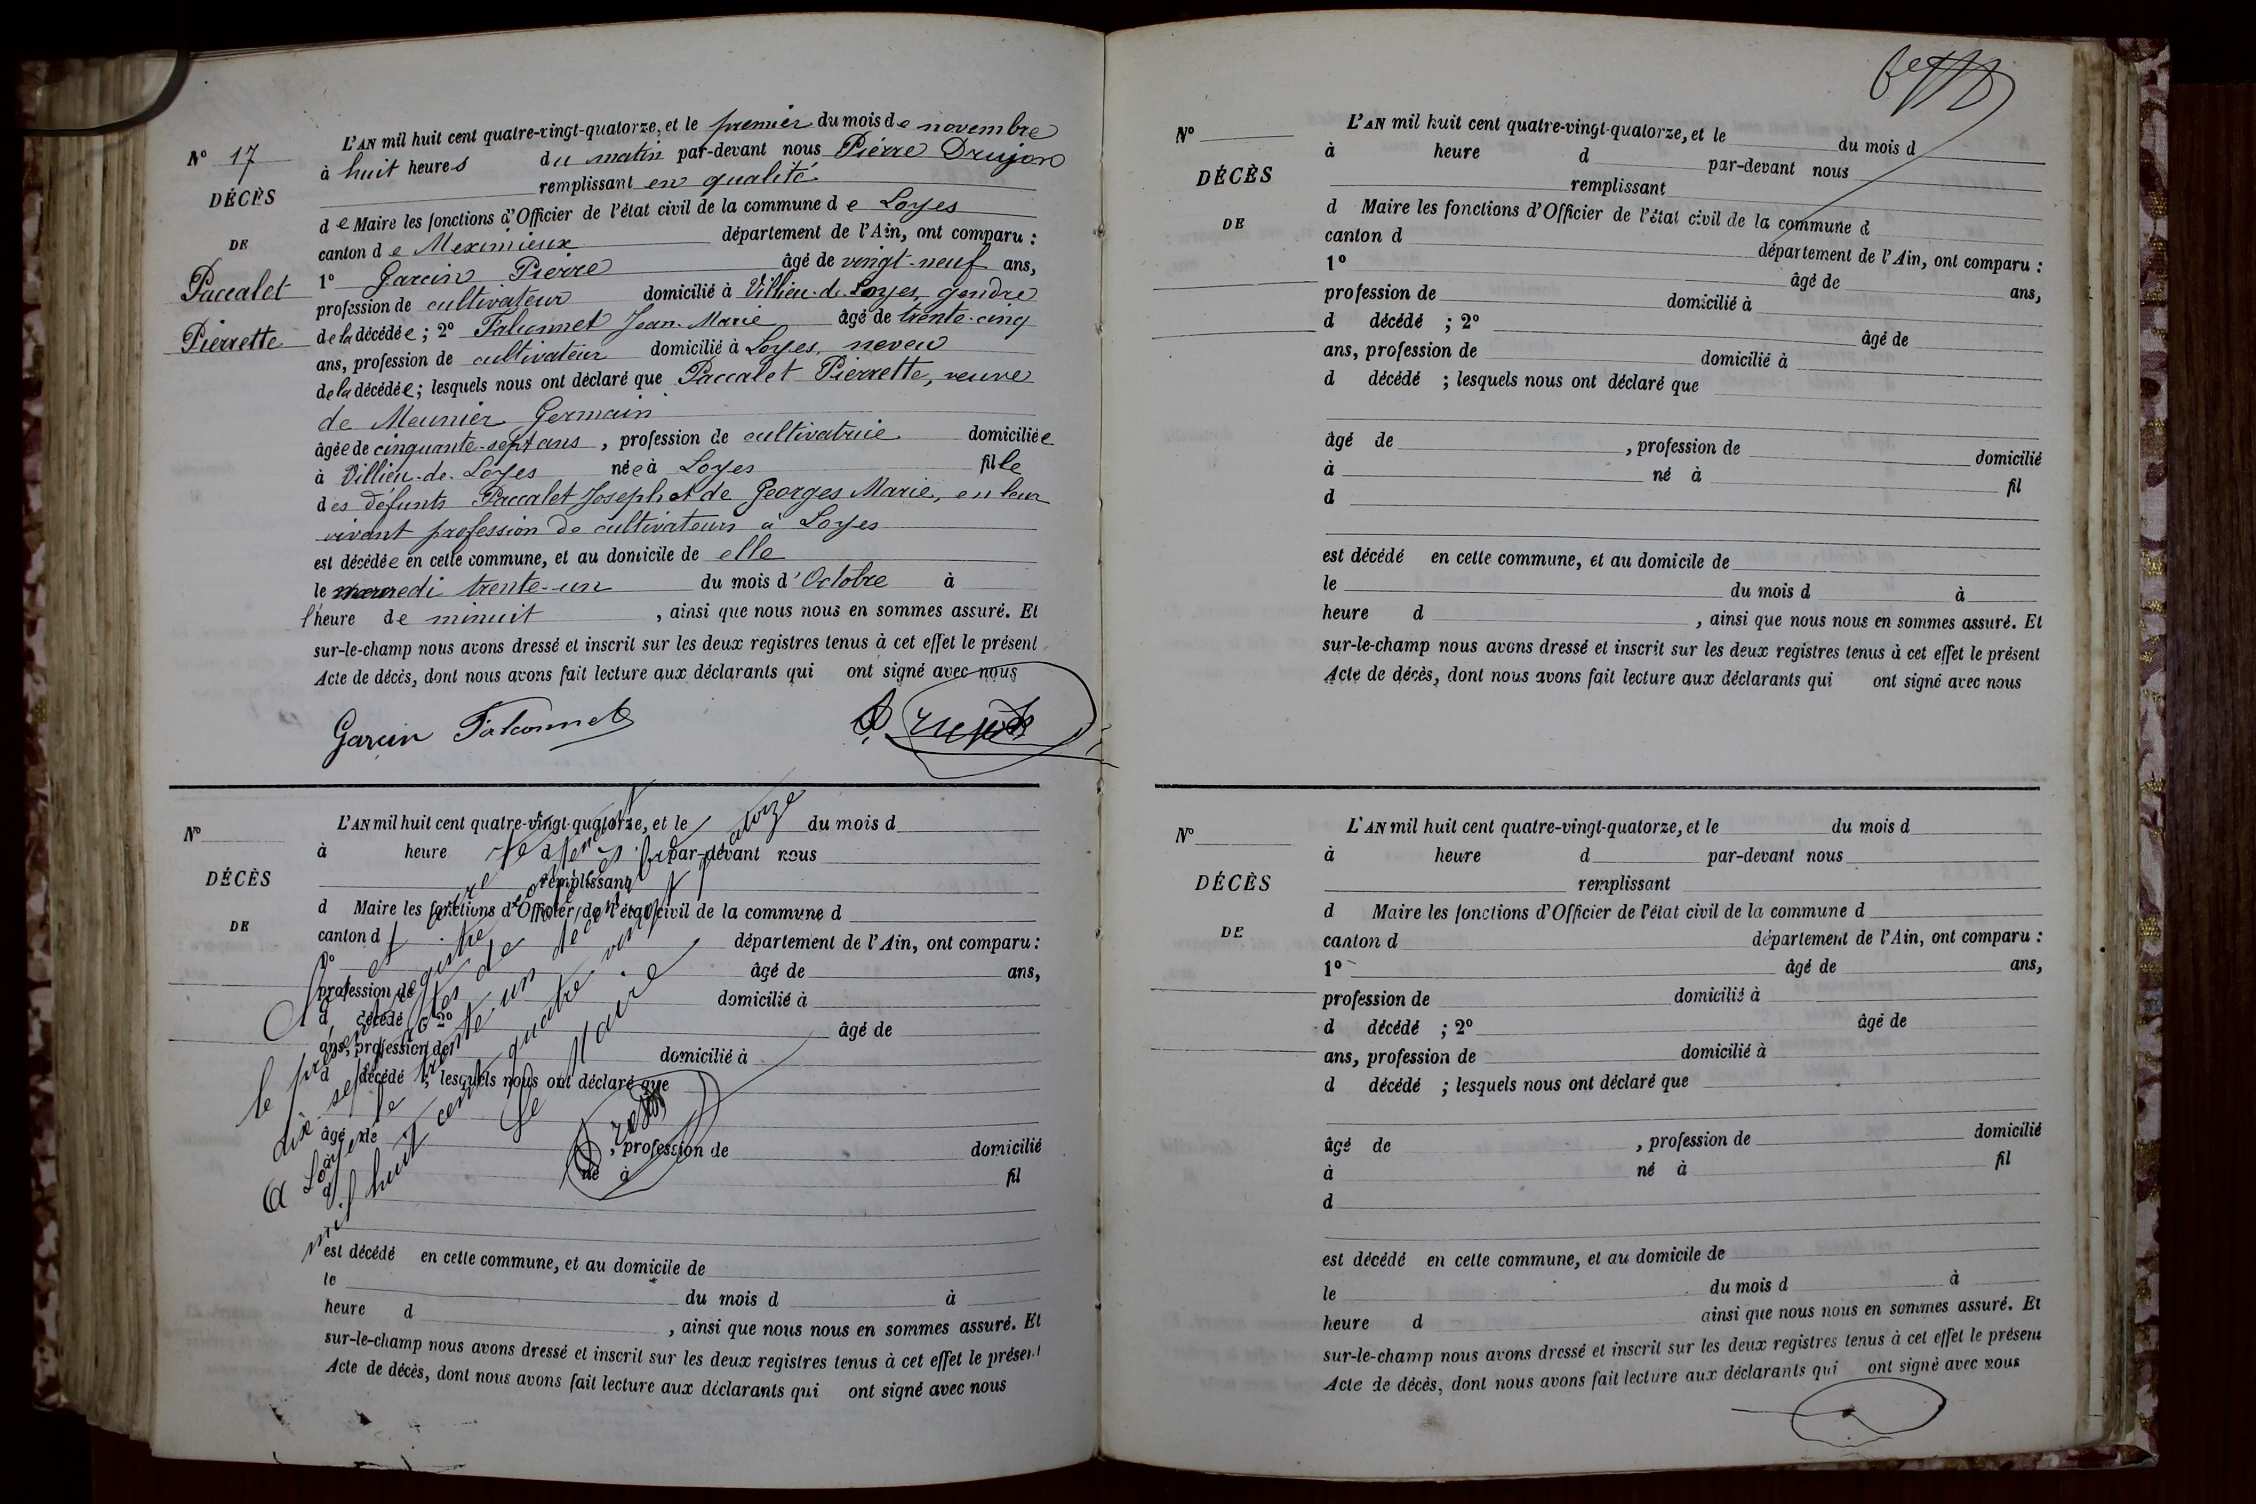 L'AN mil huit cent quatre-vingt-quatorze, et le premier du mois de novembre
N° 17
à huit heures du matin par-devant nous Pierre Drujon
remplissant en qualité
DÉCÈS
de Maire les fonctions d'Officier de l'état civil de la commune de Loyes
DE
canton de Meximieux département de l'Ain, ont comparu :
1° Garcin Pierre âgé de vingt-neuf ans,
Paccalet
profession de cultivateur domicilié à Villieu-de-Loyes, gendre
Pierrette
de la décédée ; 2° Falconnet Jean-Marie âgé de trente-cinq
ans, profession de cultivateur domicilié à Loyes, neveu
de la décédée ; lesquels nous ont déclaré que Paccalet Pierrette, veuve
de Meunier Germain
âgée de cinquante-sept ans, profession de cultivatrice domiciliée
à Villieu-de-Loyes née à Loyes fille
des défunts Paccalet Joseph et de Georges Marie, en leur
vivant profession de cultivateurs à Loyes
est décédée en cette commune, et au domicile de elle
le mercredi trente-un du mois d'Octobre à
l'heure de minuit, ainsi que nous nous en sommes assuré. Et
sur-le-champ nous avons dressé et inscrit sur les deux registres tenus à cet effet le présent
Acte de décès, dont nous avons fait lecture aux déclarants qui ont signé avec nous
Garcin Falconnet P. Drujon
L'AN mil huit cent quatre-vingt-quatorze, et le du mois d
N°
à heure d par-devant nous
remplissant
DÉCÈS
d Maire les fonctions d'Officier de l'état civil de la commune d
DE
canton d département de l'Ain, ont comparu :
1° âgé de ans,
profession de domicilié à
d décédé ; 2° âgé de
ans, profession de domicilié à
d décédé ; lesquels nous ont déclaré que
âgé de , profession de domicilié
à né à fil
d
est décédé en cette commune, et au domicile de
le du mois d à
heure d , ainsi que nous nous en sommes assuré. Et
sur-le-champ nous avons dressé et inscrit sur les deux registres tenus à cet effet le présent
Acte de décès, dont nous avons fait lecture aux déclarants qui ont signé avec nous
et
le présent registre
dix-sept actes de décès
A Loyes le trente-un décembre
mil huit cent quatre vingt quatorze
Le Maire
P. Drujon
L'AN mil huit cent quatre-vingt-quatorze, et le du mois d
N°
à heure d par-devant nous
remplissant
DÉCÈS
d Maire les fonctions d'Officier de l'état civil de la commune d
DE
canton d département de l'Ain, ont comparu :
1° âgé de ans,
profession de domicilié à
d décédé ; 2° âgé de
ans, profession de domicilié à
d décédé ; lesquels nous ont déclaré que
âgé de , profession de domicilié
à né à fil
d
est décédé en cette commune, et au domicile de
le du mois d à
heure d , ainsi que nous nous en sommes assuré. Et
sur-le-champ nous avons dressé et inscrit sur les deux registres tenus à cet effet le présent
Acte de décès, dont nous avons fait lecture aux déclarants qui ont signé avec nous
L'AN mil huit cent quatre-vingt-quatorze, et le du mois d
N°
à heure d par-devant nous
remplissant
DÉCÈS
d Maire les fonctions d'Officier de l'état civil de la commune d
DE
canton d département de l'Ain, ont comparu :
1° âgé de ans,
profession de domicilié à
d décédé ; 2° âgé de
ans, profession de domicilié à
d décédé ; lesquels nous ont déclaré que
âgé de , profession de domicilié
à né à fil
d
est décédé en cette commune, et au domicile de
le du mois d à
heure d ainsi que nous nous en sommes assuré. Et
sur-le-champ nous avons dressé et inscrit sur les deux registres tenus à cet effet le présent
Acte de décès, dont nous avons fait lecture aux déclarants qui ont signé avec nous